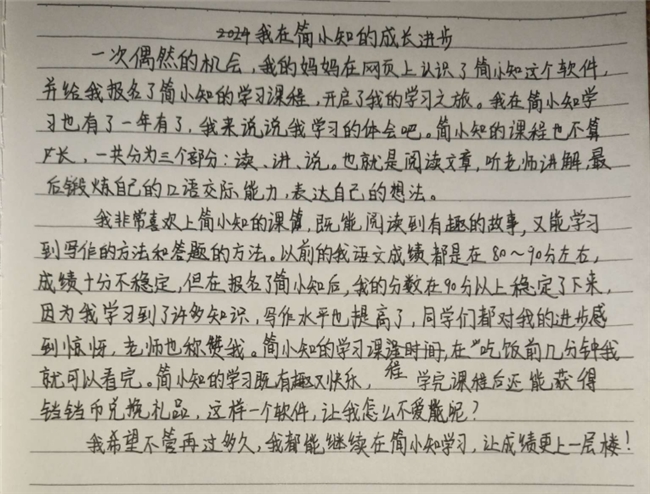 2024我在简小知的成长进步
一次偶然的机会,我的妈妈在网页上认识了简小知这个软件,
并给我报名了简小知的学习课程,开启了我的学习之旅。我在简小知学
习也有了一年有了,我来说说我学习的体会吧。简小知的课程也不算
长,一共分为三个部分:读、讲、说。也就是阅读文章,听老师讲解,最
后锻炼自己的口语交际能力,表达自己的想法。
我非常喜欢上简小知的课,既能阅读到有趣的故事,又能学习
到写作的方法和答题的方法。以前的我语文成绩都是在80~90分左右,
成绩十分不稳定,但在报名了简小知后,我的分数在90分以上稳定了下来,
因为我学习到了许多知识,写作水平也提高了,同学们都对我的进步感
到惊讶,老师也称赞我。简小知的学习课程时间,在吃饭前几分钟我
就可以看完。简小知的学习既有趣又快乐,学完课程后还能获得
铛铛币兑换礼品,这样一个软件,让我怎么不爱呢?
我希望不管再过多久,我都能继续在简小知学习,让成绩更上一层楼!